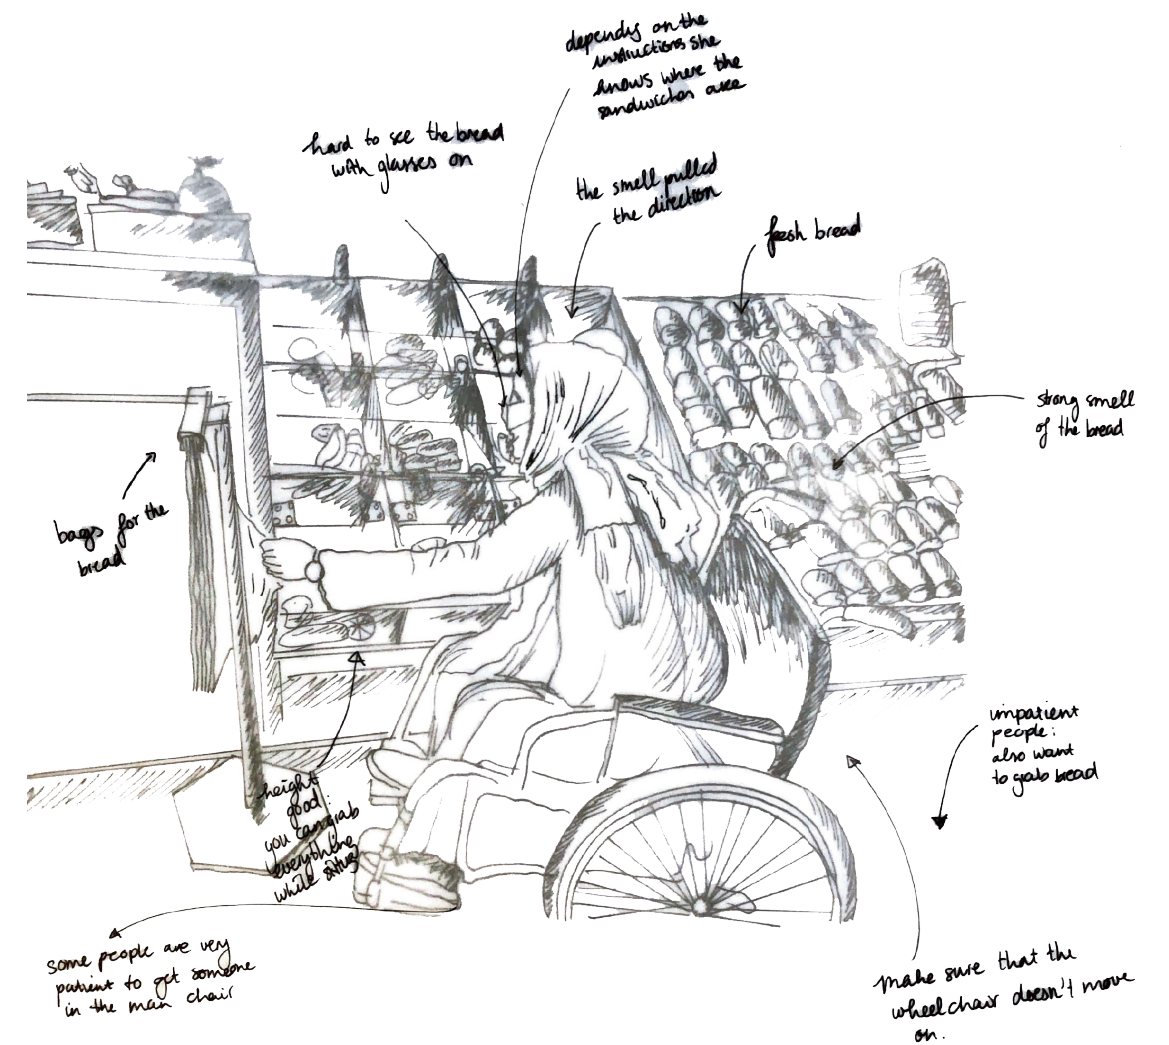 depends on the
instructions she
knows where the
sandwiches are
hard to see the bread
with glasses on
the smell pulled
the direction
fresh bread
strong smell
of the bread
bags for the
bread
impatient
people:
also want
to grab bread
height
good
you can grab
everything
while sitting
some people are very
patient to get someone
in the man chair
make sure that the
wheelchair doesn't move
on.